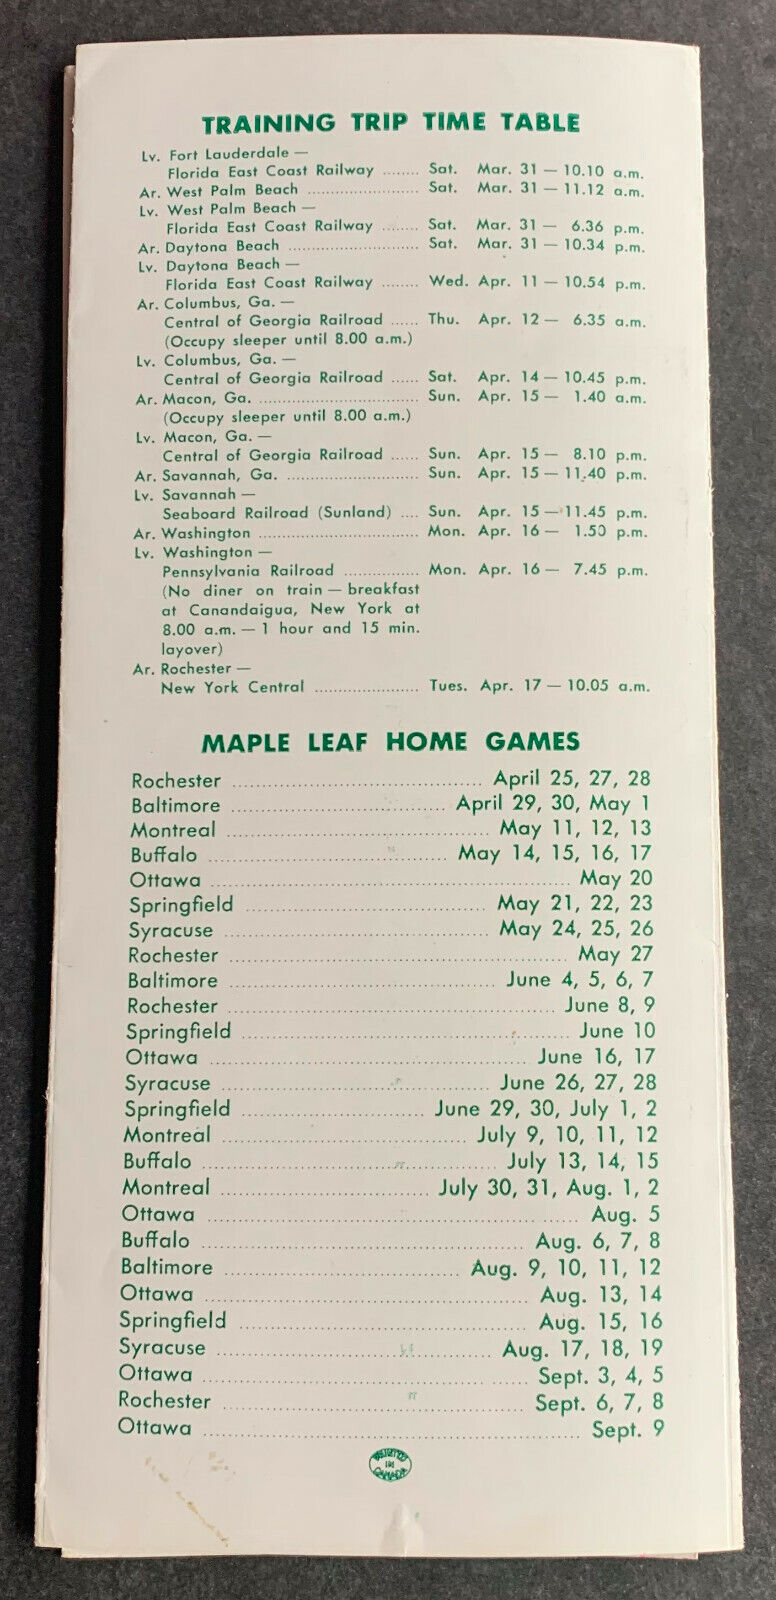 TRAINING TRIP TIME TABLE
Lv. Fort Lauderdale —
Florida East Coast Railway ........ Sat. Mar. 31 — 10.10 a.m.
Ar. West Palm Beach ........................ Sat. Mar. 31 — 11.12 a.m.
Lv. West Palm Beach —
Florida East Coast Railway ........ Sat. Mar. 31 — 6.36 p.m.
Ar. Daytona Beach ............................ Sat. Mar. 31 — 10.34 p.m.
Lv. Daytona Beach —
Florida East Coast Railway ........ Wed. Apr. 11 — 10.54 p.m.
Ar. Columbus, Ga. —
Central of Georgia Railroad ...... Thu. Apr. 12 — 6.35 a.m.
(Occupy sleeper until 8.00 a.m.)
Lv. Columbus, Ga. —
Central of Georgia Railroad ...... Sat. Apr. 14 — 10.45 p.m.
Ar. Macon, Ga. .................................. Sun. Apr. 15 — 1.40 a.m.
(Occupy sleeper until 8.00 a.m.)
Lv. Macon, Ga. —
Central of Georgia Railroad ...... Sun. Apr. 15 — 8.10 p.m.
Ar. Savannah, Ga. ............................ Sun. Apr. 15 — 11.40 p.m.
Lv. Savannah —
Seaboard Railroad (Sunland) .... Sun. Apr. 15 — 11.45 p.m.
Ar. Washington .................................. Mon. Apr. 16 — 1.50 p.m.
Lv. Washington —
Pennsylvania Railroad ................ Mon. Apr. 16 — 7.45 p.m.
(No diner on train — breakfast
at Canandaigua, New York at
8.00 a.m. — 1 hour and 15 min.
layover)
Ar. Rochester —
New York Central ...................... Tues. Apr. 17 — 10.05 a.m.
MAPLE LEAF HOME GAMES
Rochester ........................................ April 25, 27, 28
Baltimore .................................. April 29, 30, May 1
Montreal .......................................... May 11, 12, 13
Buffalo ...................................... May 14, 15, 16, 17
Ottawa .......................................................... May 20
Springfield ...................................... May 21, 22, 23
Syracuse .......................................... May 24, 25, 26
Rochester ...................................................... May 27
Baltimore .......................................... June 4, 5, 6, 7
Rochester .................................................... June 8, 9
Springfield .................................................... June 10
Ottawa .................................................... June 16, 17
Syracuse .......................................... June 26, 27, 28
Springfield .............................. June 29, 30, July 1, 2
Montreal ...................................... July 9, 10, 11, 12
Buffalo ............................................ July 13, 14, 15
Montreal .............................. July 30, 31, Aug. 1, 2
Ottawa .......................................................... Aug. 5
Buffalo .................................................. Aug. 6, 7, 8
Baltimore .................................... Aug. 9, 10, 11, 12
Ottawa .................................................... Aug. 13, 14
Springfield .............................................. Aug. 15, 16
Syracuse .......................................... Aug. 17, 18, 19
Ottawa .................................................. Sept. 3, 4, 5
Rochester ................................................ Sept. 6, 7, 8
Ottawa .......................................................... Sept. 9
PRINTED
IN
CANADA